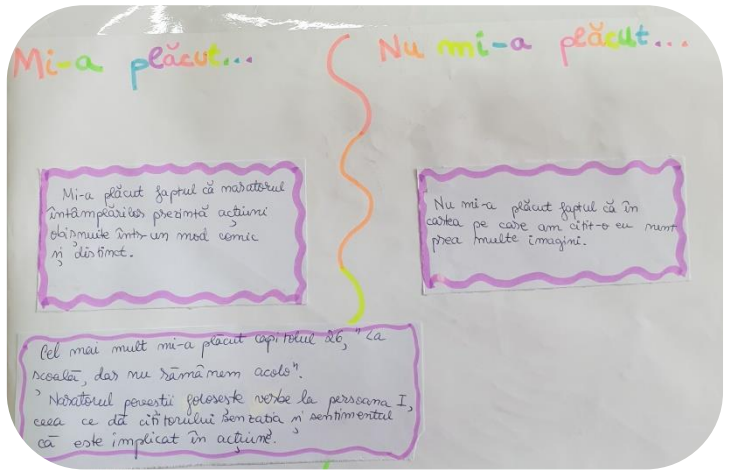 Mi-a plăcut...
Mi-a plăcut faptul că naratorul
întâmplărilor prezintă acțiuni
obișnuite într-un mod comic
și distinct.
Cel mai mult mi-a plăcut capitolul 26, "La
școală, dar nu rămânem acolo".
Naratorul povestii folosește verbe la persoana I,
ceea ce dă cititorului senzația și sentimentul
că este implicat în acțiune.
Nu mi-a plăcut...
Nu mi-a plăcut faptul că în
cartea pe care am citit-o eu sunt
prea multe imagini.